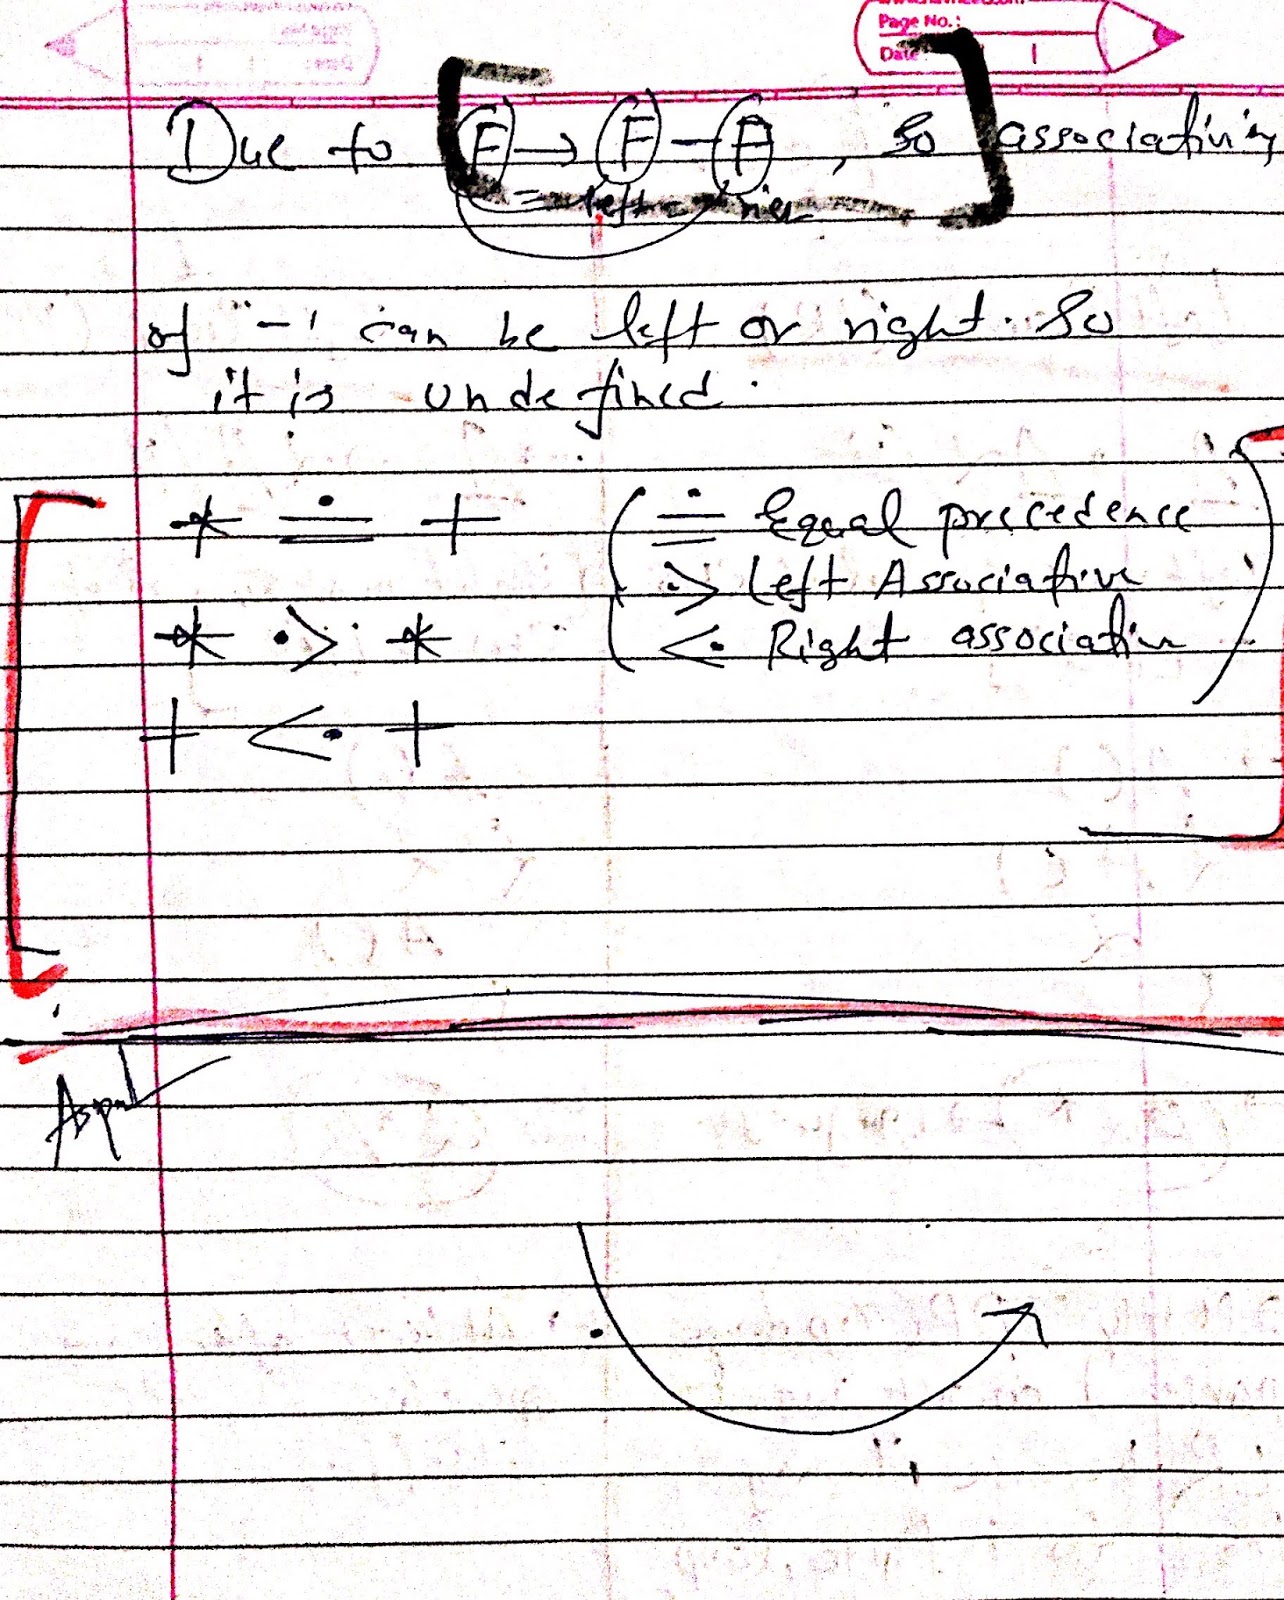 Page No.:
Date
Due to F → F - F , so associativity
of '-' can be left or right. So
it is undefined.
* ≐ + ( ≐ Equal precedence
* ⋗ * ⋗ Left Associative
+ ⋖ + ⋖ Right associative )